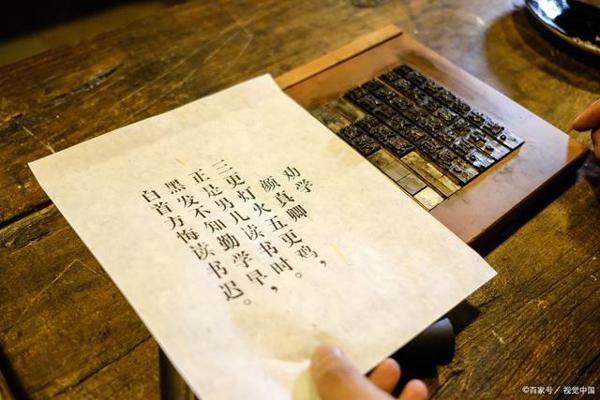 劝学
颜真卿
三更灯火五更鸡，
正是男儿读书时。
黑发不知勤学早，
白首方悔读书迟。
©百家号／视觉中国